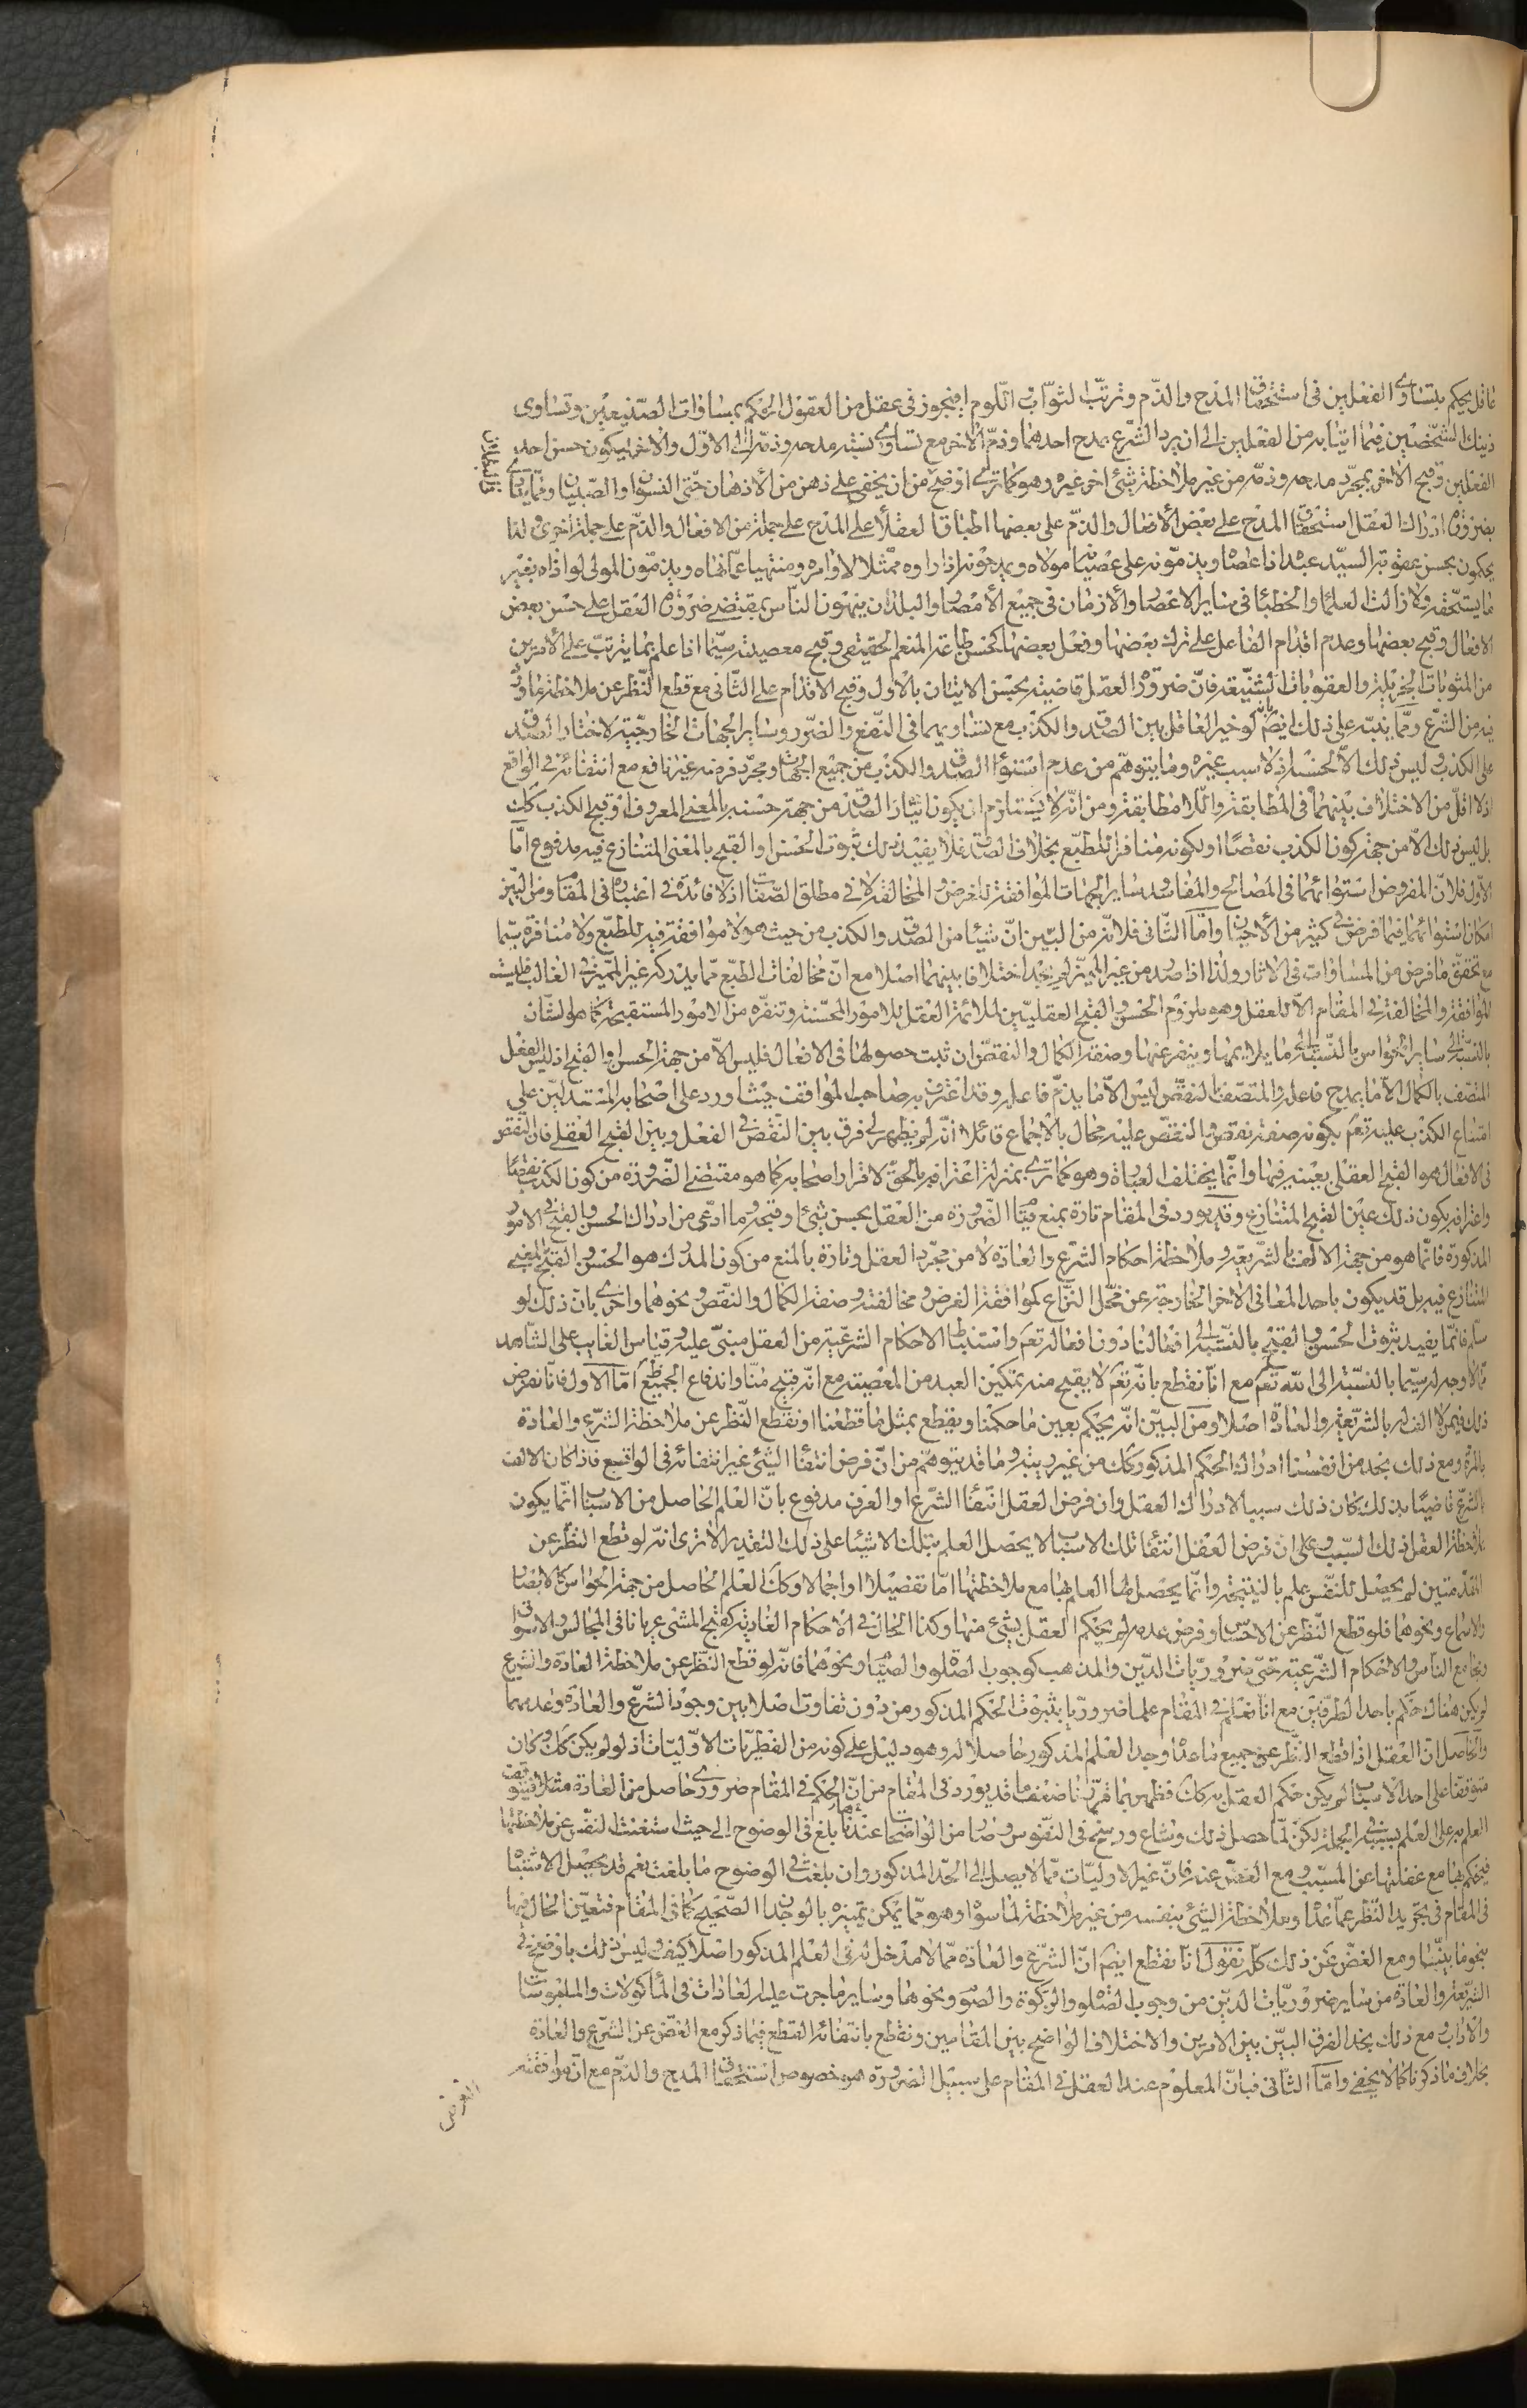 عاقل يحكم بتساوى الفعلين فى استحقاق المدح والذم وترتب الثواب اللوم او يجوز فى عقل من العقول الحكم بمساوات الصنيعين وتساوى
ذينك الشخصين فيما اتيا به من الفعلين الى ان يرد الشرع بمدح احدهما وذم الاخر مع تساوى نسبة مدحه وذمه الى الاول والاخر فيكون حسن احد
الفعلين وقبح الاخر بمجرد مدحه وذمه من غير ملاحظة شئ اخر غيره وهو كما ترى اوضح من ان يخفى على ذهن من الاذهان حتى النسوان والصبيان وممّا ينادى
بضرورة ادراك العقل استحقاق المدح على بعض الافعال والذم على بعضها اطباق العقلاء على المدح على جملة من الافعال والذم على جملة اخرى ولذا
يحكمون بحسن عقوبة السيد عبدا اذا عصاه ويذمونه على عصيان مولاه ويمدحونه اذا راوه ممتثلا لاوامره ومنتهيا عمّا نهاه ويذمون المولى لو اذاه بغير
ما يستحقه ولا زالت العلماء والخطباء فى ساير الاعصار والازمان فى جميع الامصار والبلدان ينبهون الناس بمقتضى ضرورة العقل على حسن بعض
الافعال وقبح بعضها وعدم اقدام الفاعل على ترك بعضها وفعل بعضها كحسن طاعة المنعم الحقيقى وقبح معصيته سيّما اذا علم بما يترتب على الامرين
من المثوبات الجزيلة والعقوبات الشنيعة فان ضرورة العقل قاضية بحسن الاتيان بالاول وقبح الاقدام على الثانى مع قطع النظر عن ملاحظة ما ورد
فيه من الشرع وممّا ينبه على ذلك ايضم انه لو خير العاقل بين الصدق والكذب مع تساويهما فى النفع والضرر وساير الجهات الخارجية لاختار الصدق
على الكذب وليس ذلك الا لحسنه اذ لا سبب غيره وما يتوهم من عدم استواء الصدق والكذب من جميع الجهات ومجرد فرضه غير نافع مع انتفائه فى الواقع
اذ لا اقل من الاختلاف بينهما فى المطابقة واللا مطابقة ومن انه لا يستلزم ان يكون ايثار الصدق من جهة حسنه بالمعنى المعروف او قبح الكذب كك
بل ليس ذلك الا من جهة كون الكذب نقصا او لكونه منافرا للطبع بخلاف الصدق فلا يفيد ذلك ثبوت الحسن او القبح بالمعنى المتنازع فيه مدفوع امّا
الاول فلان المفروض استوائهما فى المصالح والمفاسد وساير الجهات الموافقة للغرض والمخالفة لا فى مطلق الصفات اذ لا فائدة فى اعتباره فى المقام ومن البيّن
امكان استوائهما فيما فرض فى كثير من الاحيان وامّا الثانى فلانه من البيّن ان شيئا من الصدق والكذب من حيث هو لا موافقة فيه للطبع ولا منافرة سيّما
مع تحقق ما فرض من المساوات فى الاثار ولذا اذا صدر من غير المميّز لم يجد اختلافا بينهما اصلا مع ان مخالفات الطبع ممّا يدركه غير المميّز فى الغالب فليست
الموافقة والمخالفة فى المقام الا للعقل وهو ملزوم الحسن والقبح العقليين لملائمة العقل للامور المحسّنة وتنفره من الامور المستقبحة كما هو الشان
بالنسبة الى ساير الحواس بالنسبة الى ما يلايمها وينفر عنها وصفة الكمال والنقص ان ثبت حصولها فى الافعال فليس الا من جهة الحسن والقبح اذ ليس الفعل
المتصف بالكمال الا ما يمدح فاعله والمتصف بالنقص ليس الا ما يذم فاعله وقد اعترف به صاحب المواقف حيث اورد على اصحابه المستدلين على
امتناع الكذب عليه تعم بكونه صفة نقص والنقص عليه محال بالاجماع قائلا انه لم يظهر لى فرق بين النقص فى الفعل وبين القبح العقلى فان النقص
فى الافعال هو القبح العقلى بعينه فيها وانما يختلف العبارة وهو كما ترى بمنزلة اعترافه بالحق لاقرار اصحابه كما هو مقتضى الضرورة من كون الكذب نقصا
واعترافه بكون ذلك عين القبح المتنازع وقد يورد فى المقام تارة بمنع قيام الضرورة من العقل بحسن شئ او قبحه وما ادعى من ادراك الحسن والقبح فى الامور
المذكورة فانما هو من جهة الالف بالشريعة وملاحظة احكام الشرع والعادة لا من مجرد العقل وتارة بالمنع من كون المدرك هو الحسن والقبح بالمعنى
المتنازع فيه بل قد يكون باحد المعانى الاخر الخارجة عن محل النزاع كموافقة الغرض ومخالفته وصفة الكمال والنقص ونحوهما واخرى بان ذلك لو
سلم فانما يفيد ثبوت الحسن والقبح بالنسبة الى افعالنا دون افعاله تعم واستنباط الاحكام الشرعية من العقل مبنى عليه وقياس الغايب على الشاهد
ممّا لا وجه له سيّما بالنسبة الى الله تعم مع انا نقطع بانه تعم لا يقبح منه تمكين العبد من المعصية مع انه قبيح منا واندفاع الجميع ظ امّا الاول فانا نفرض
ذلك فيمن لا الف له بالشريعة والعادة اصلا ومن البيّن انه يحكم بعين ما حكمنا ويقطع بمثل ما قطعنا او نقطع النظر عن ملاحظة الشرع والعادة
بالمرة ومع ذلك نجد من انفسنا ادراك الحكم المذكور كك من غير ريبة وما قد يتوهم من ان فرض انتفاء الشئ غير انتفائه فى الواقع فاذا كان الالف
بالشرع قاضيا بذلك كان ذلك سببا لادراك العقل وان فرض العقل انتفاء الشرع او العرف مدفوع بان العلم الحاصل من الاسباب انما يكون
بملاحظة العقل ذلك السبب وعلى ان فرض العقل انتفاء تلك الاسباب لا يحصل العلم بتلك الاشياء على ذلك التقدير الا ترى انه لو قطع النظر عن
المقدمتين لم يحصل للنفس علم بالنتيجة وانما يحصل لها العلم بها مع ملاحظتها امّا تفصيلا او اجمالا وكك العلم الحاصل من جهة الحواس كالابصار
والاسماع ونحوهما فلو قطع النظر عن الاحساس وفرض عدمه لم يحكم العقل بشئ منها وكذا الحال فى الاحكام العادية كقبح المشى عريانا فى المجالس والاسواق
ومجامع الناس والاحكام الشرعية حتى ضروريات الدين والمذهب كوجوب الصلوة والصيام ونحوهما فانه لو قطع النظر عن ملاحظة العادة والشرع
لم يكن هناك حكم باحد الطرفين مع انا نعلم فى المقام علما ضروريا بثبوت الحكم المذكور من دون تفاوت اصلا بين وجود الشرع والعادة وعدمهما
والحاصل ان العقل اذا قطع النظر عن جميع ما عداه وجد العلم المذكور حاصلا له وهو دليل على كونه من الفطريات الاوليات اذ لو لم يكن كك وكان
متوقفا على احد الاسباب لم يكن حكم العقل به كك فظهر بما قررنا ضعف ما قد يورد فى المقام من ان الحكم فى المقام ضرورى حاصل من العادة مثلا فيتوقف
العلم به على العلم بسببه فى الجملة لكن لمّا حصل ذلك وشاع ورسخ فى النفوس وصار من الواضحات عندهم بلغ فى الوضوح الى حيث استغنت النفس عن ملاحظتها
فيحكم بها مع غفلتها عن المسبب ومع الغض عنه فان غير الاوليات ممّا لا يصل الى الحد المذكور وان بلغت فى الوضوح ما بلغت نعم قد يحصل الاشتباه
فى المقام فى تجريد النظر عمّا عداه وملاحظة الشئ بنفسه من غير ملاحظة لما سواه وهو ممّا يمكن تميزه بالوجدان الصحيح كما فى المقام فتعيّن الحال فيها
بنحو ما بيّنا ومع الغض عن ذلك كله نقول انا نقطع ايضم ان الشرع والعادة ممّا لا مدخل له فى العلم المذكور اصلا كيف وليس ذلك باوضح فى
الشريعة والعادة من ساير ضروريات الدين من وجوب الصلوة والزكوة والصوم ونحوها وساير ما جرت عليه العادات فى الماكولات والملبوسات
والاداب ومع ذلك نجد الفرق البيّن بين الامرين والاختلاف الواضح بين المقامين ونقطع بانتفائه القطع فيما ذكر مع الغض عن الشرع والعادة
بخلاف ما ذكرنا كما لا يخفى وامّا الثانى فبان المعلوم عند العقل فى المقام على سبيل الضرورة هو خصوص استحقاق المدح والذم مع ان موافقة
الغرض